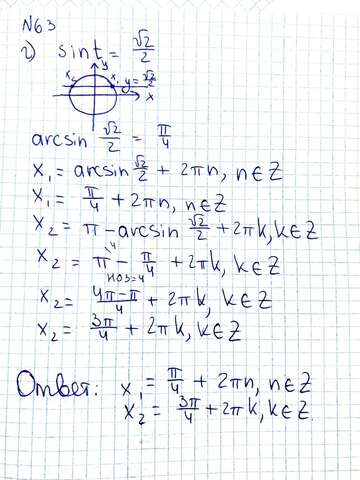 N63
г) sint = √2/2
y
x₂ x₁ y = √2/2
x
arcsin √2/2 = π/4
x₁ = arcsin √2/2 + 2πn, n∈Z
x₁ = π/4 + 2πn, n∈Z
x₂ = π - arcsin √2/2 + 2πk, k∈Z
x₂ = π\4 - π/4 + 2πk, k∈Z
НОЗ=4
x₂ = 4π-π/4 + 2πk, k∈Z
x₂ = 3π/4 + 2πk, k∈Z
Ответ: x₁ = π/4 + 2πn, n∈Z
x₂ = 3π/4 + 2πk, k∈Z.